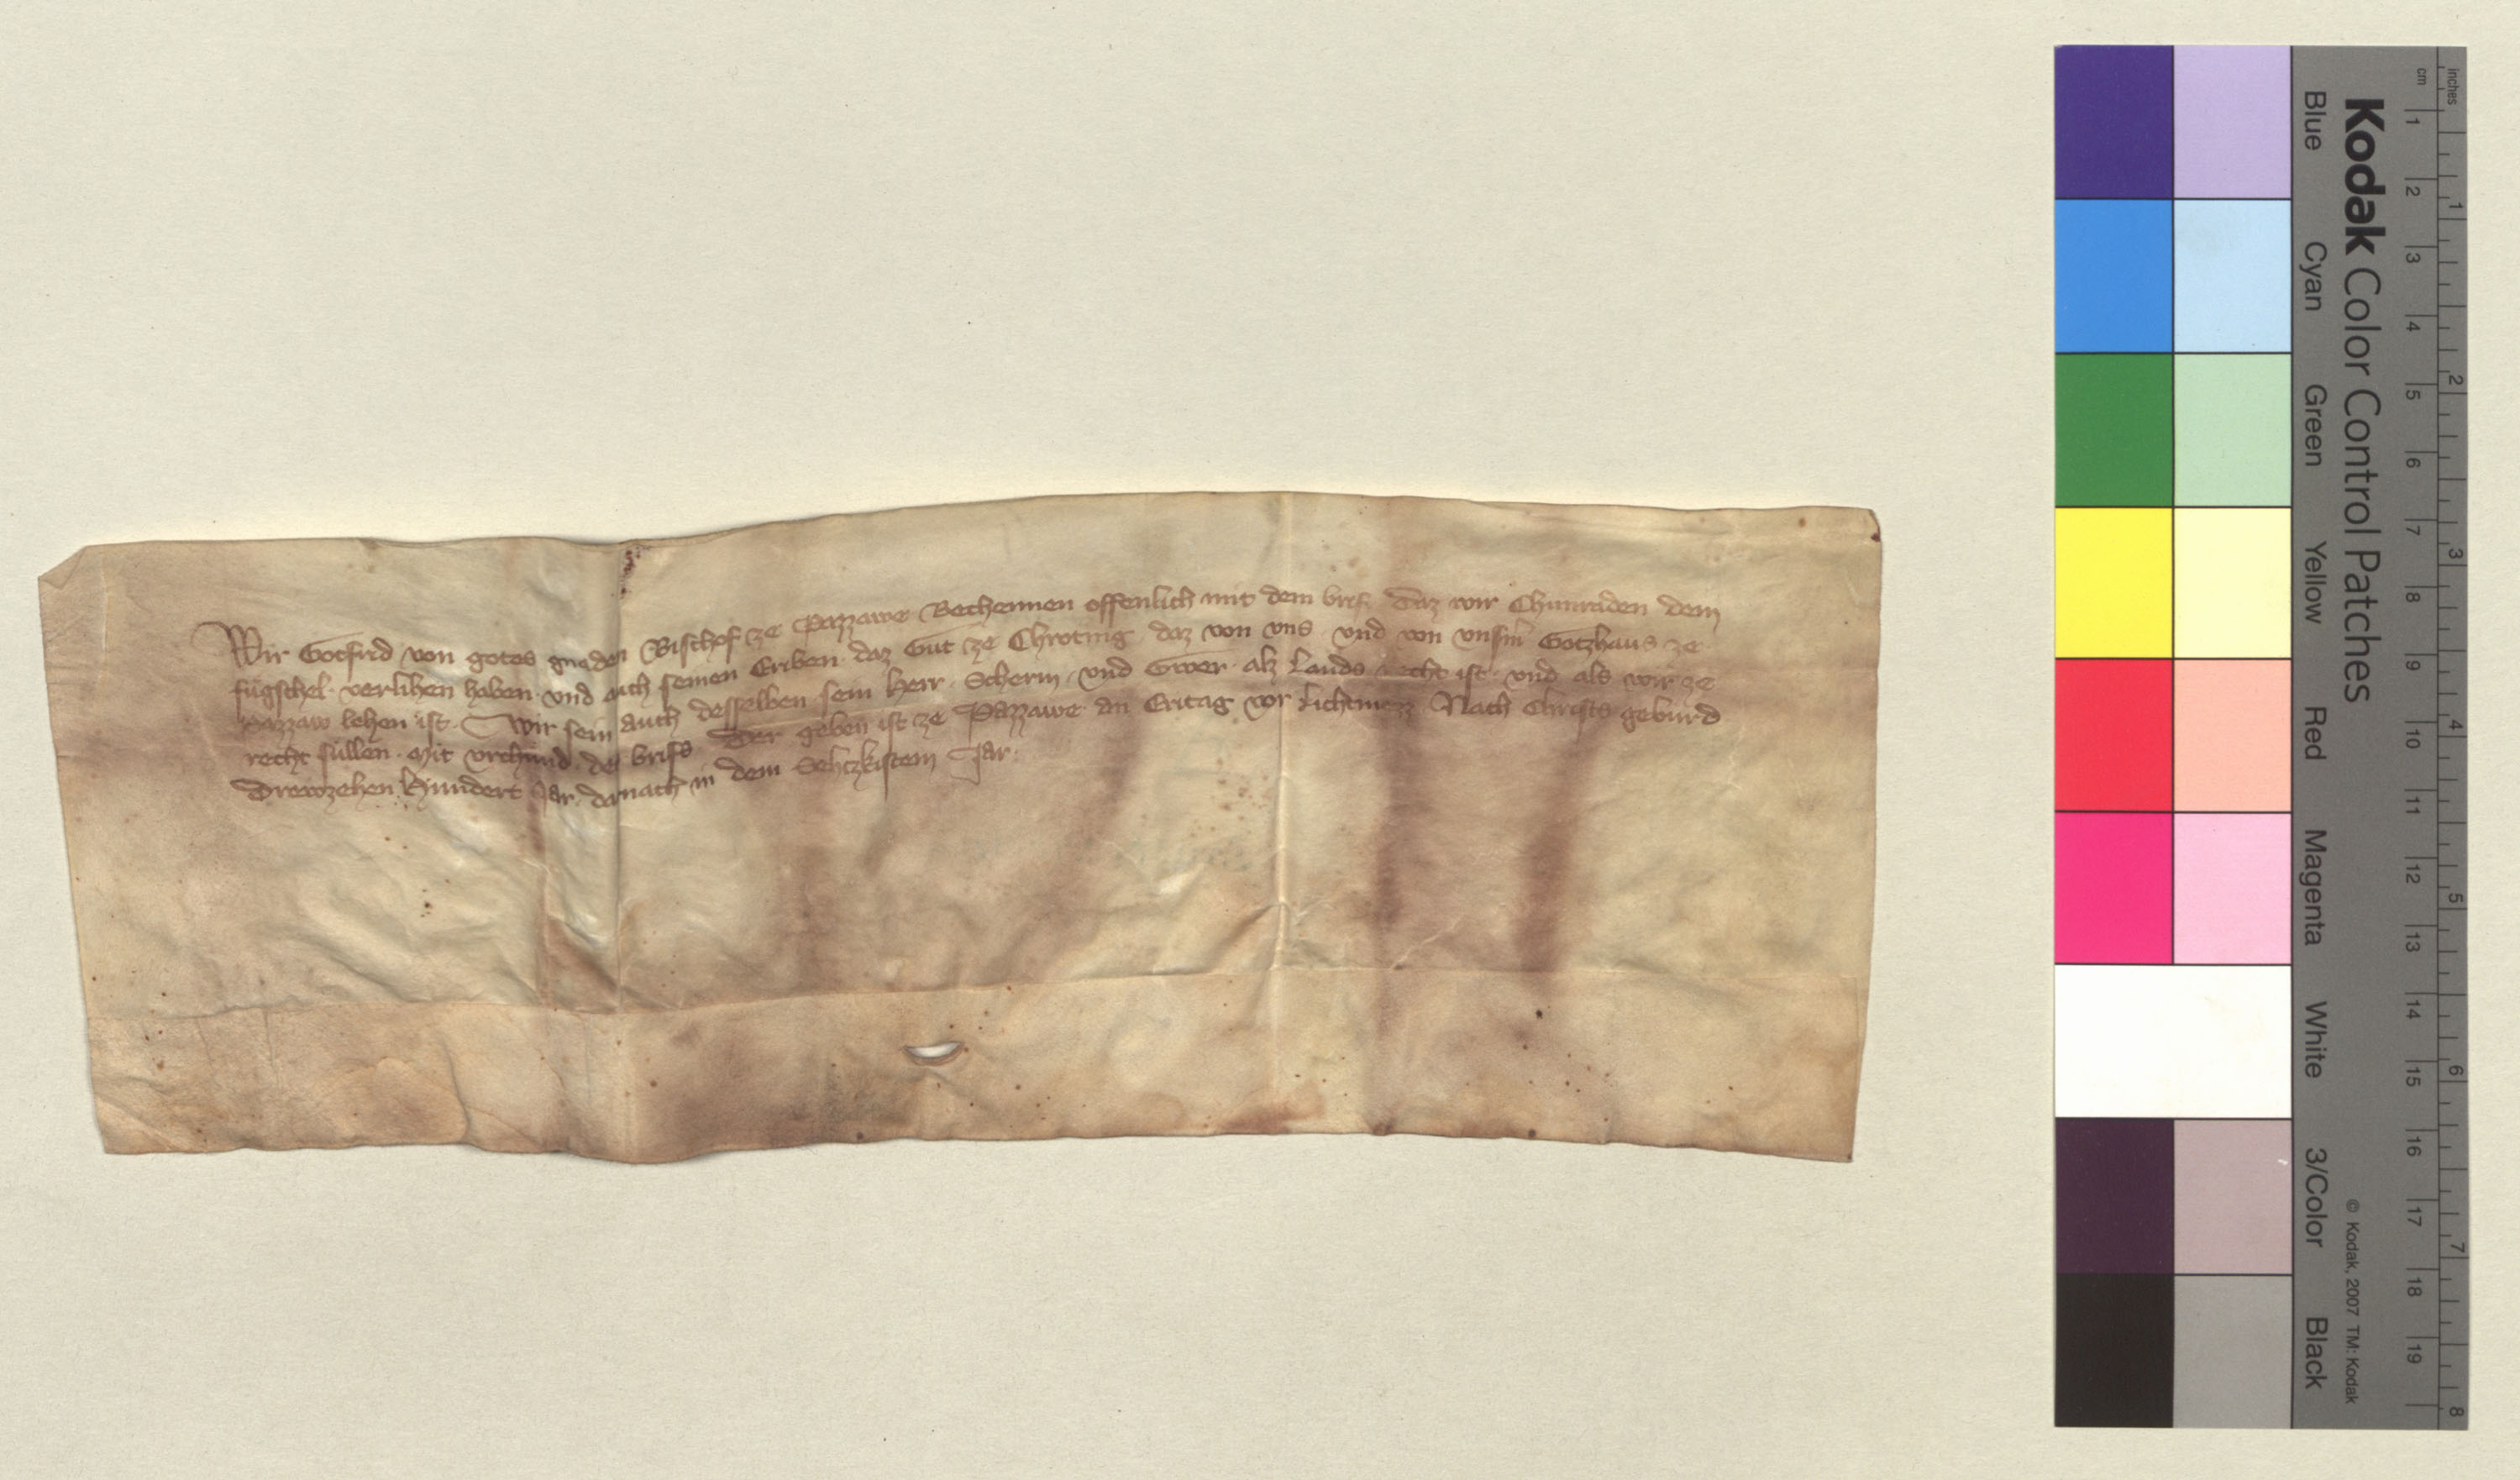 Wir Gotfrid von gotes gnaden Bischof ze Pazzawe Bechennen offenlich mit dem brif daz wir Chunraden dem
fügschel verlihen haben und auch seinen Eriben daz Gut ze Chroting daz von uns und von unserm Gotzhaus ze
Pazzaw lehen ist. Wir sein auch desselben sein Herr Scherm und Gwer alz Lands recht ist und als wir ze
recht süllen mit urchund des brifs Der geben ist ze Pazzawe an Eritag vor Lichtmezz Nach Christs gebürd
Drewzehen Hundert Jar darnach in dem Sehtzkistem Jar
Kodak Color Control Patches
Blue Cyan Green Yellow Red Magenta White 3/Color Black
© Kodak, 2007 TM: Kodak
cm 1 2 3 4 5 6 7 8 9 10 11 12 13 14 15 16 17 18 19
inches 1 2 3 4 5 6 7 8